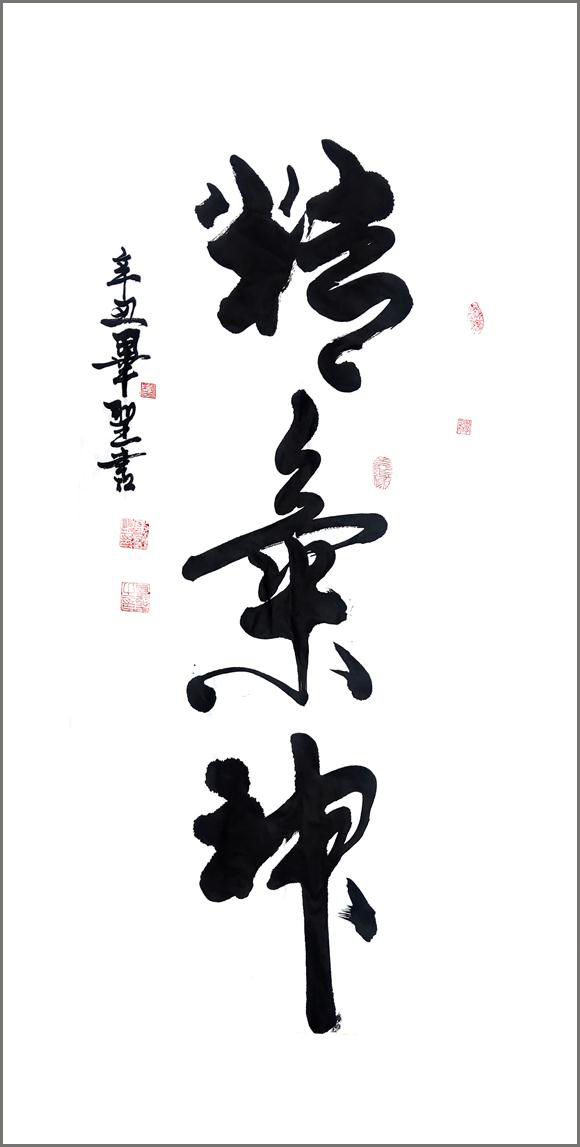 精氣神
辛丑畢聖書